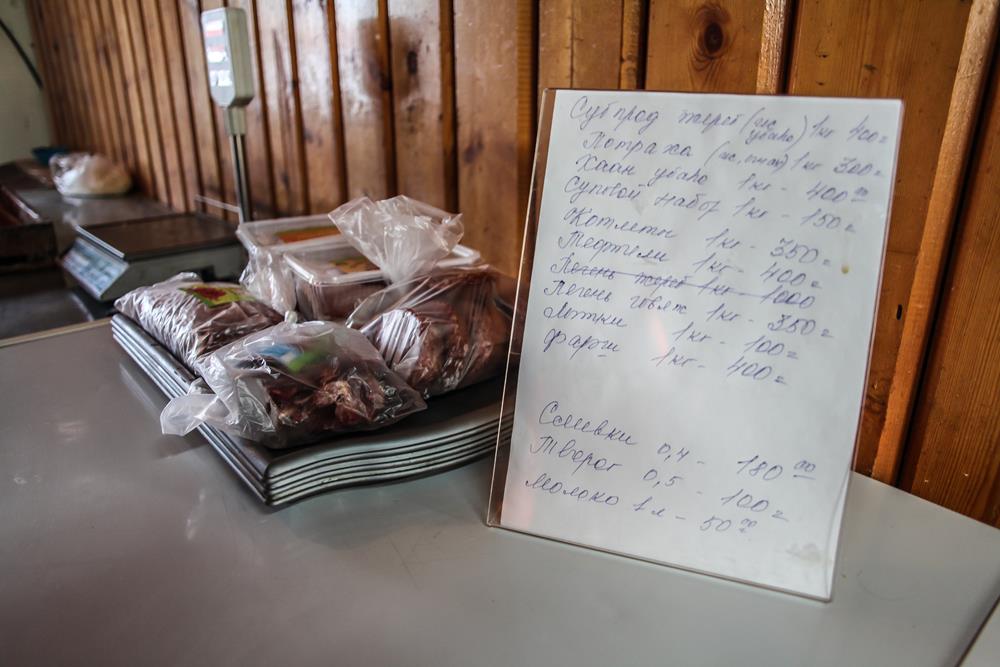 Субпрод жереб (ис, убано) 1 кг 400=
Потраха (ис, ) 1 кг 300=
Хаан убано 1 кг - 400 00
Суповой набор 1 кг - 150=
Котлеты 1 кг - 350=
Тефтели 1 кг - 400=
Печень жереб 1 кг - 1000
Печень говяж 1 кг - 350=
1 кг - 100=
Фарш 1 кг - 400=
Сливки 0,4 - 180 00
Творог 0,5 - 100=
Молоко 1 л - 50 00